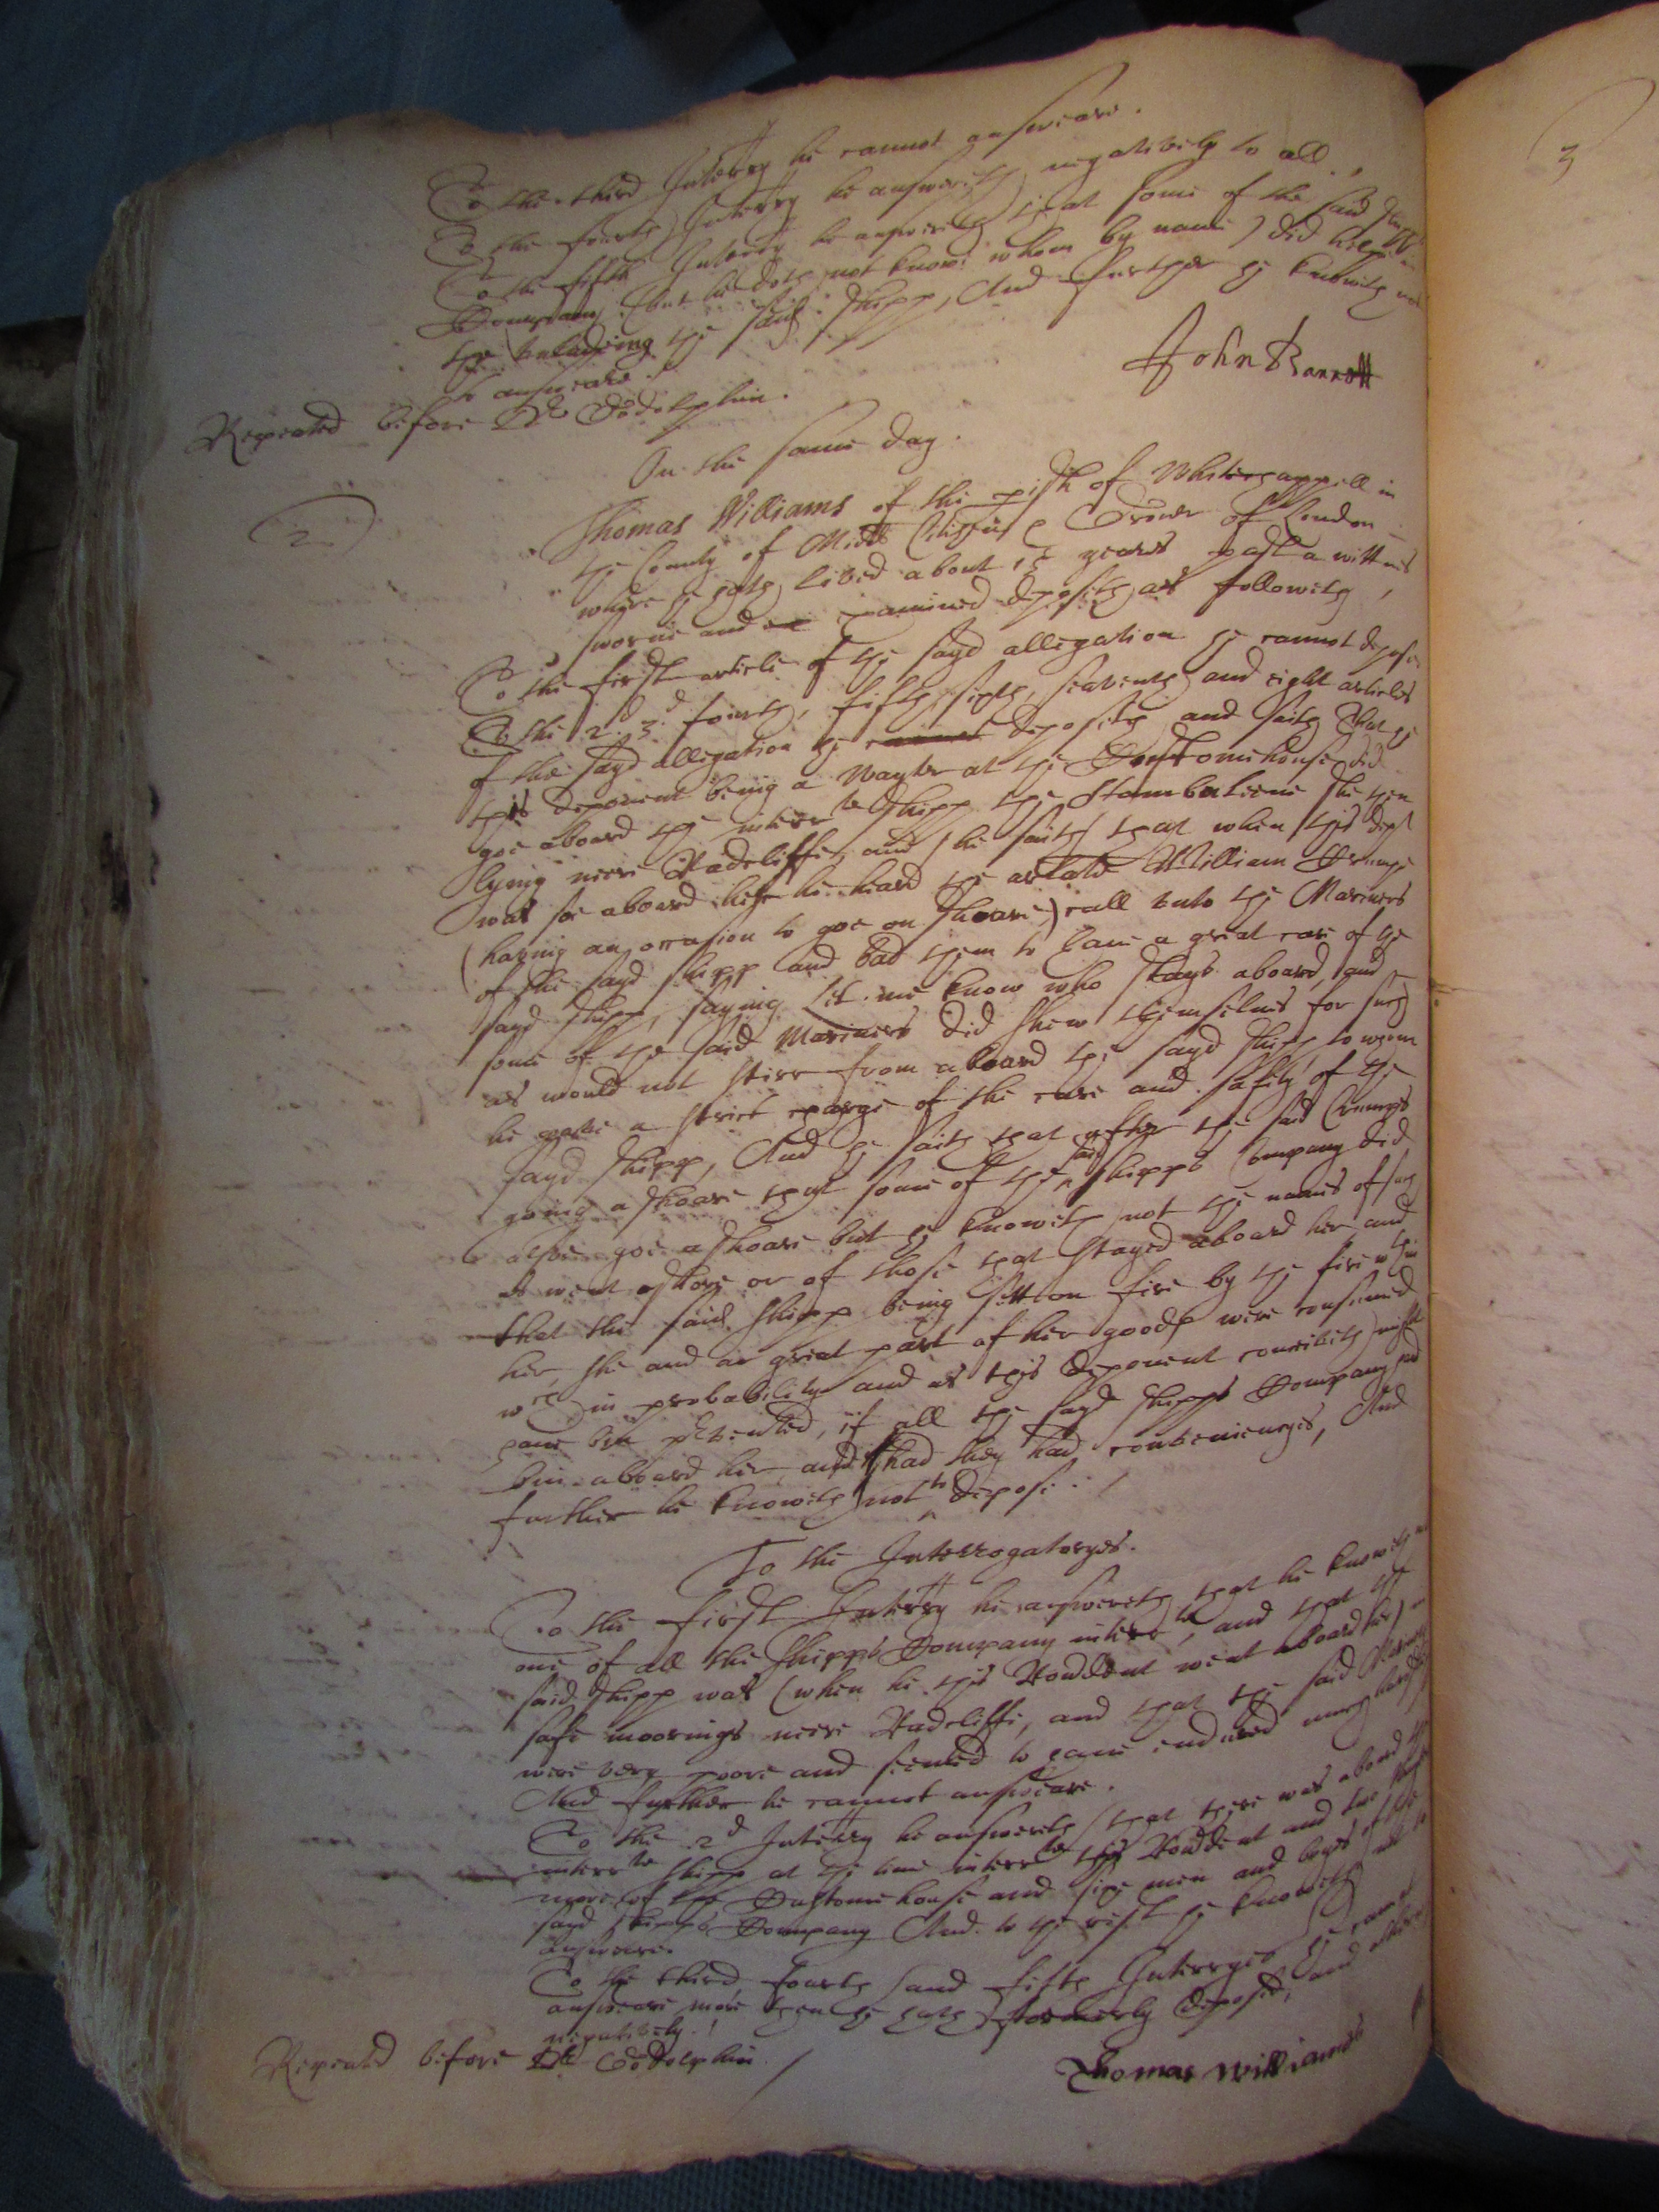 To the third Interry he cannot answeare.
To the fourth Interry he answereth negatively to all.
To the fifth Interry he answereth that some of the said Shipps
Company (but he doth not knowe whom by name) did helpe in
the unladeing the said Shipp, And further he knoweth not
to answeare.
John Barrott
Repeated before Dr Godolphin.
On the same day.
2
Thomas Williams of the pish of Whitechappell in
the County of Midd Citizen Grocer of London
where he hath lived about 15 yeares past a wittnes
sworne and examined deposeth as followeth,
To the first article of the sayd allegation he cannot depose
To the 2d 3d fourth, fifth, sixth, seaventh and eight articles
of the sayd allegation he cannot deposeth and saith That he
this deponent being a Wayter at the Customehouse did
goe aboard the interrte Shipp the Stambuleene she then
lying neere Radcliffe, and he saith that when this dept
was soe aboard her he heard the arlate William
(having an occasion to goe on Shoare) call unto the Mariners
of the sayd Shipp and bad them to have a great care of the
sayd Shipp, saying Let me know who stays aboard, and
some of the said Mariners did shew themselves for such
as would not stirr from aboard the sayd Shipp to whom
he gave a strict charge of the care and safety of the
sayd Shipp, And he saith that after the said
going a shoare that some of the said Shipps Company did
alsoe goe a shoare but he knoweth not the names of such
as went ashore or of those that stayed aboard her and
that the said Shipp being sett on fire by the fire wthin
her, she and a great part of her goods were consumed
wch in probability and as this deponent conceiveth might
have bin prevented, if all the sayd Shipps Company had
bin aboard her, and had they had conveniencyes, And
further he knoweth not to depose.
To the Interrogatoryes.
To the first Interry he answereth that he knoweth not
one of all the Shipps Company interrte, and that the
said Shipp was (when he this Rondent went aboard her) in
safe moorings neere Radcliffe, and that the said Mariners
were very poore and seemed to have endured much hardshipp
And further he cannot answeare.
To the 2d Interry he answereth that there was aboard the
interrte Shipp at the time interrte this Rondent and two
more of the Custome house and six men and boyes of the
sayd Shipps Company And to the rest he knoweth not to
answeare.
To the third fourth and fifth Interryes he cannot
answeare more then he hath formerly deposed, and
negatively.
Thomas Williams
Repeated before Dr Godolphin.
3